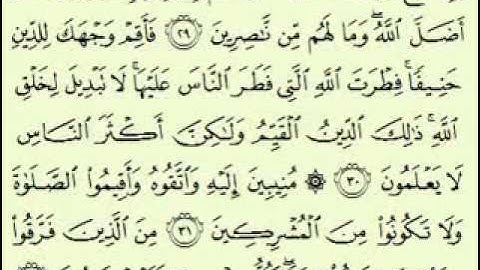 أَضَلَّ ٱللَّهُۖ وَمَا لَهُم مِّن نَّٰصِرِينَ ٢٩ فَأَقِمْ وَجْهَكَ لِلدِّينِ
حَنِيفٗاۚ فِطْرَتَ ٱللَّهِ ٱلَّتِي فَطَرَ ٱلنَّاسَ عَلَيْهَاۚ لَا تَبْدِيلَ لِخَلْقِ
ٱللَّهِۚ ذَٰلِكَ ٱلدِّينُ ٱلْقَيِّمُ وَلَٰكِنَّ أَكْثَرَ ٱلنَّاسِ
لَا يَعْلَمُونَ ٣٠ ۞ مُنِيبِينَ إِلَيْهِ وَٱتَّقُوهُ وَأَقِيمُوا۟ ٱلصَّلَوٰةَ
وَلَا تَكُونُوا۟ مِنَ ٱلْمُشْرِكِينَ ٣١ مِنَ ٱلَّذِينَ فَرَّقُوا۟